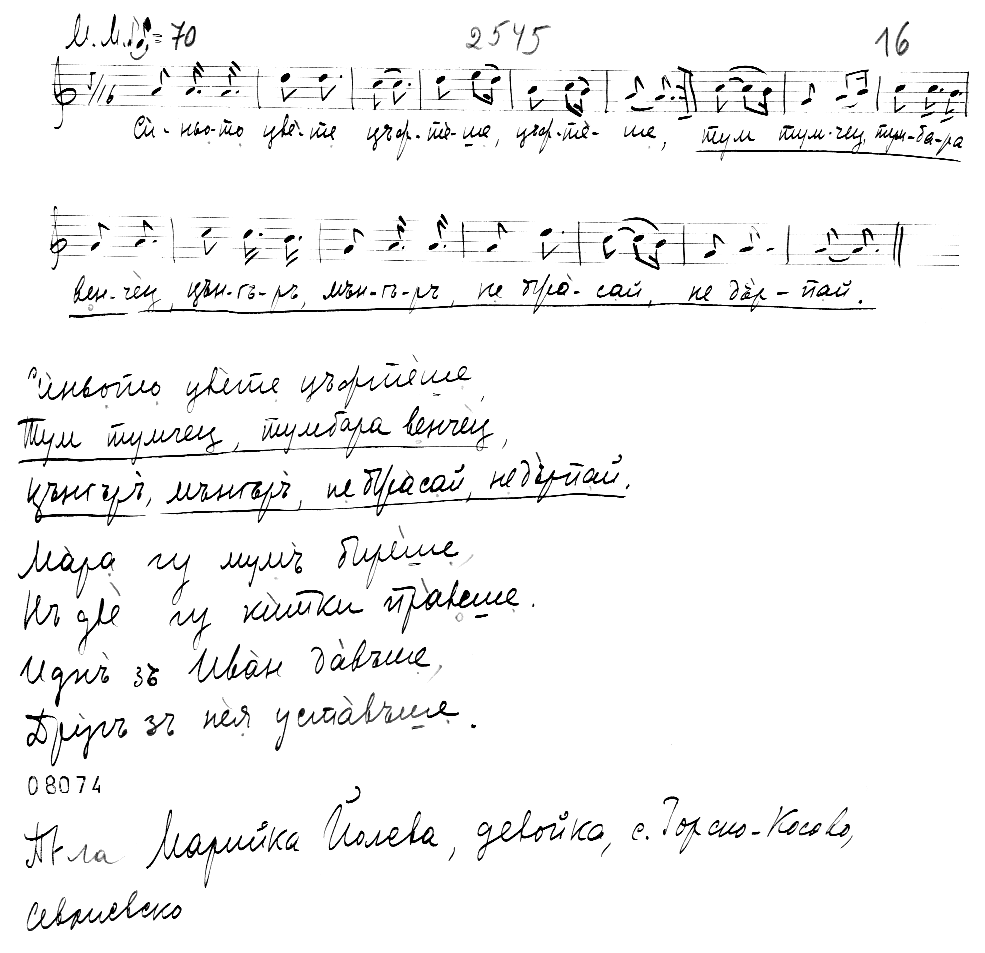 М. М. = 70 2545 16
7/16
Си̇̀-ньо-то цвѐ-те цъф-тѐ-ше, цъф-тѐ-ше, тум тум-чец, тум-ба-ра
вен-чѐц, цън-гъ-ръ, мън-гъ-ръ, не бра̀-сай, не дъ̀р-пай.
Сѝньото цвѐте цъфтѐше,
Тум тумчец, тумбара венчѐц,
цънгъръ̀, мънгъръ̀, не бра̀сай, не дъ̀рпай.
Ма̀ра гу мумъ̀ бирѐше,
Нъ двѐ гу кѝтки пра̀веше.
Иднъ̀ зъ Ива̀н да̀въше,
Дру̀гъ зъ нѐя уста̀въше.
08074
Пя-ла Марийка Йолева, девойка, с. Горско-Косово,
Севлиевско